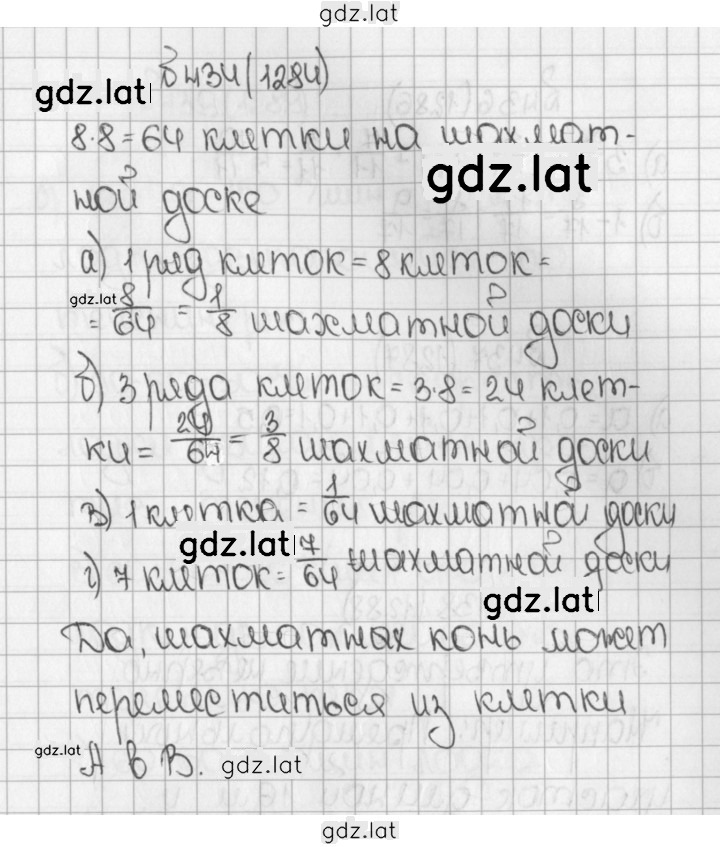 gdz.lat
в 434 (1284)
gdz.lat
8·8=64 клетки на шахмат-
gdz.lat
ной доске
а) 1 ряд клеток = 8 клеток =
gdz.lat
= 8/64 = 1/8 шахматной доски
б) 3 ряда клеток = 3·8 = 24 клет-
ки = 24/64 = 3/8 шахматной доски
в) 1 клетка = 1/64 шахматной доски
gdz.lat
г) 7 клеток = 7/64 шахматной доски
gdz.lat
Да, шахматных конь может
переместиться из клетки
gdz.lat
А в В. gdz.lat
gdz.lat